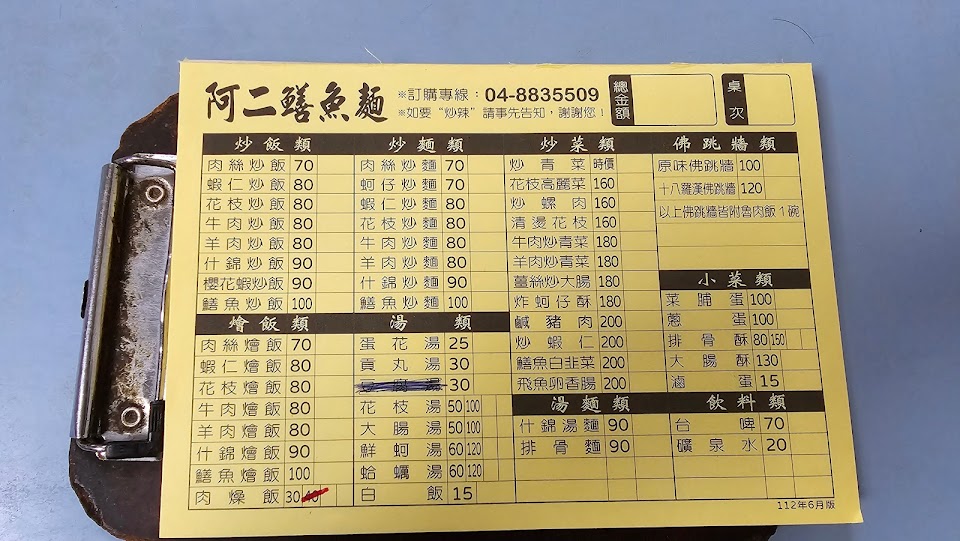 阿二鱔魚麵
※訂購專線：04-8835509
※如要"炒辣"請事先告知，謝謝您！
總金額
桌次
炒飯類
肉絲炒飯 70
蝦仁炒飯 80
花枝炒飯 80
牛肉炒飯 80
羊肉炒飯 80
什錦炒飯 90
櫻花蝦炒飯 90
鱔魚炒飯 100
燴飯類
肉絲燴飯 70
蝦仁燴飯 80
花枝燴飯 80
牛肉燴飯 80
羊肉燴飯 80
什錦燴飯 90
鱔魚燴飯 100
肉燥飯 30 40
炒麵類
肉絲炒麵 70
蚵仔炒麵 70
蝦仁炒麵 80
花枝炒麵 80
牛肉炒麵 80
羊肉炒麵 80
什錦炒麵 90
鱔魚炒麵 100
湯類
蛋花湯 25
貢丸湯 30
豆腐湯 30
花枝湯 50 100
大腸湯 50 100
鮮蚵湯 60 120
蛤蠣湯 60 120
白飯 15
炒菜類
炒青菜 時價
花枝高麗菜 160
炒螺肉 160
清燙花枝 160
牛肉炒青菜 180
羊肉炒青菜 180
薑絲炒大腸 180
炸蚵仔酥 180
鹹豬肉 200
炒蝦仁 200
鱔魚白韭菜 200
飛魚卵香腸 200
湯麵類
什錦湯麵 90
排骨麵 90
佛跳牆類
原味佛跳牆 100
十八羅漢佛跳牆 120
以上佛跳牆皆附魯肉飯1碗
小菜類
菜脯蛋 100
蔥蛋 100
排骨酥 80 150
大腸酥 130
滷蛋 15
飲料類
台啤 70
礦泉水 20
112年6月版